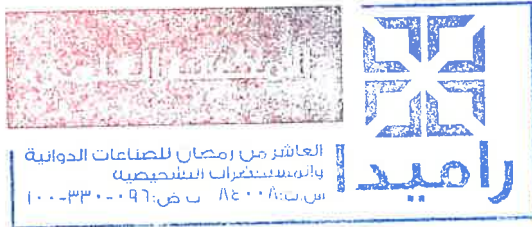 راميدا
العاشر من رمضان للصناعات الدوائية
والمستحضرات التشخيصية
س.ت: ٨٤٠٠٨ ب ض: ٠٩٦-٣٣٠-١٠٠